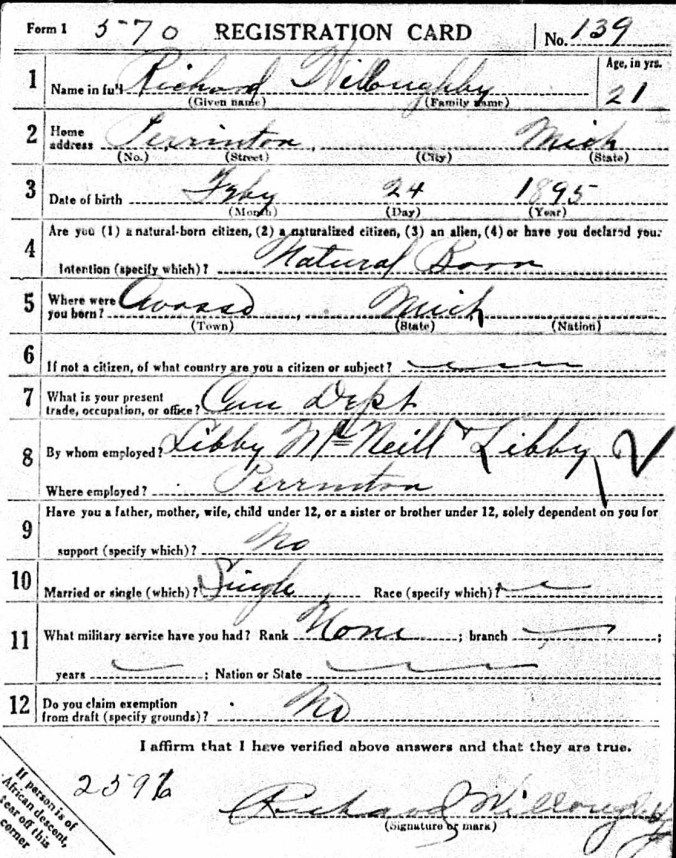 Form 1 570 REGISTRATION CARD No. 139
1 Name in full Richard Willoughby Age, in yrs. 21
(Given name) (Family name)
2 Home address Perrinton, Mich
(No.) (Street) (City) (State)
3 Date of birth Feby 24 1895
(Month) (Day) (Year)
4 Are you (1) a natural-born citizen, (2) a naturalized citizen, (3) an alien, (4) or have you declared your
intention (specify which)? Natural Born
5 Where were you born? Owosso, Mich
(Town) (State) (Nation)
6 If not a citizen, of what country are you a citizen or subject?
7 What is your present trade, occupation, or office? Can Dept
8 By whom employed? Libby McNeill & Libby
Where employed? Perrinton
9 Have you a father, mother, wife, child under 12, or a sister or brother under 12, solely dependent on you for
support (specify which)? No
10 Married or single (which)? Single Race (specify which)?
11 What military service have you had? Rank None ; branch ;
years ; Nation or State
12 Do you claim exemption from draft (specify grounds)? No
I affirm that I have verified above answers and that they are true.
If person is of
African descent,
tear off this
corner
2596
Richard Willoughby
(Signature or mark)